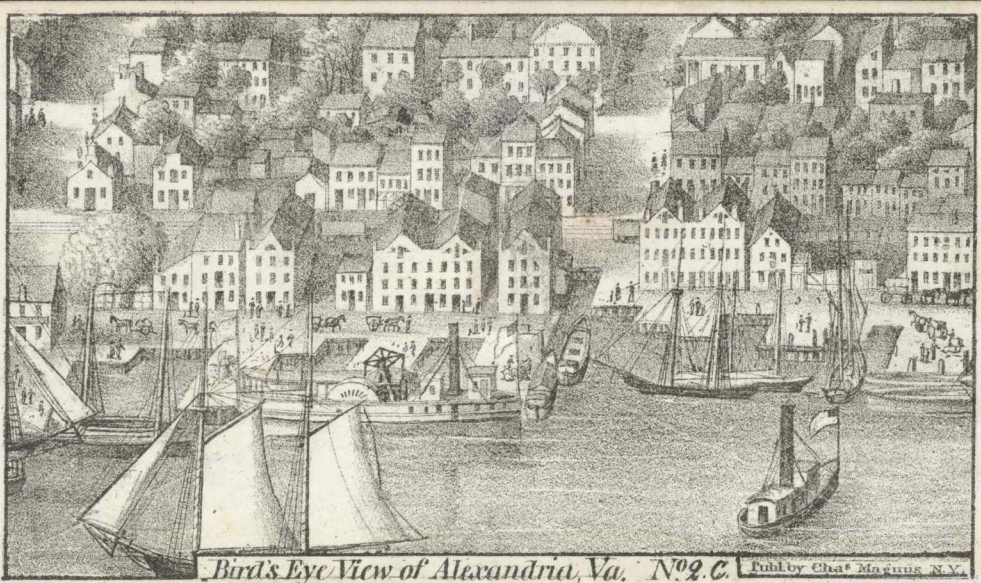 Bird's Eye View of Alexandria, Va. No 2. C. Publ. by Chas Magnus N.Y.